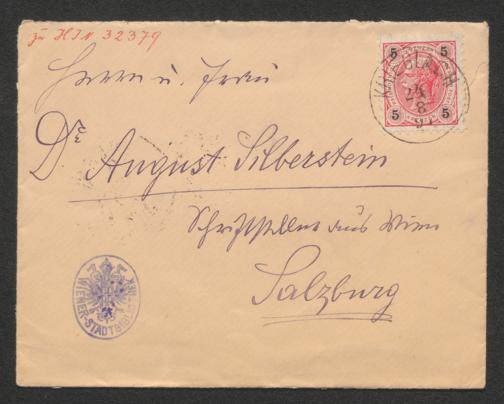 zu HIN 32379
Herrn u. Frau
Dr. August Silberstein
Schriftsteller aus Wien
Salzburg
5 5
5 5
KRIEGLACH
24
8
91
WIENER-STADTBIBLIOTHEK